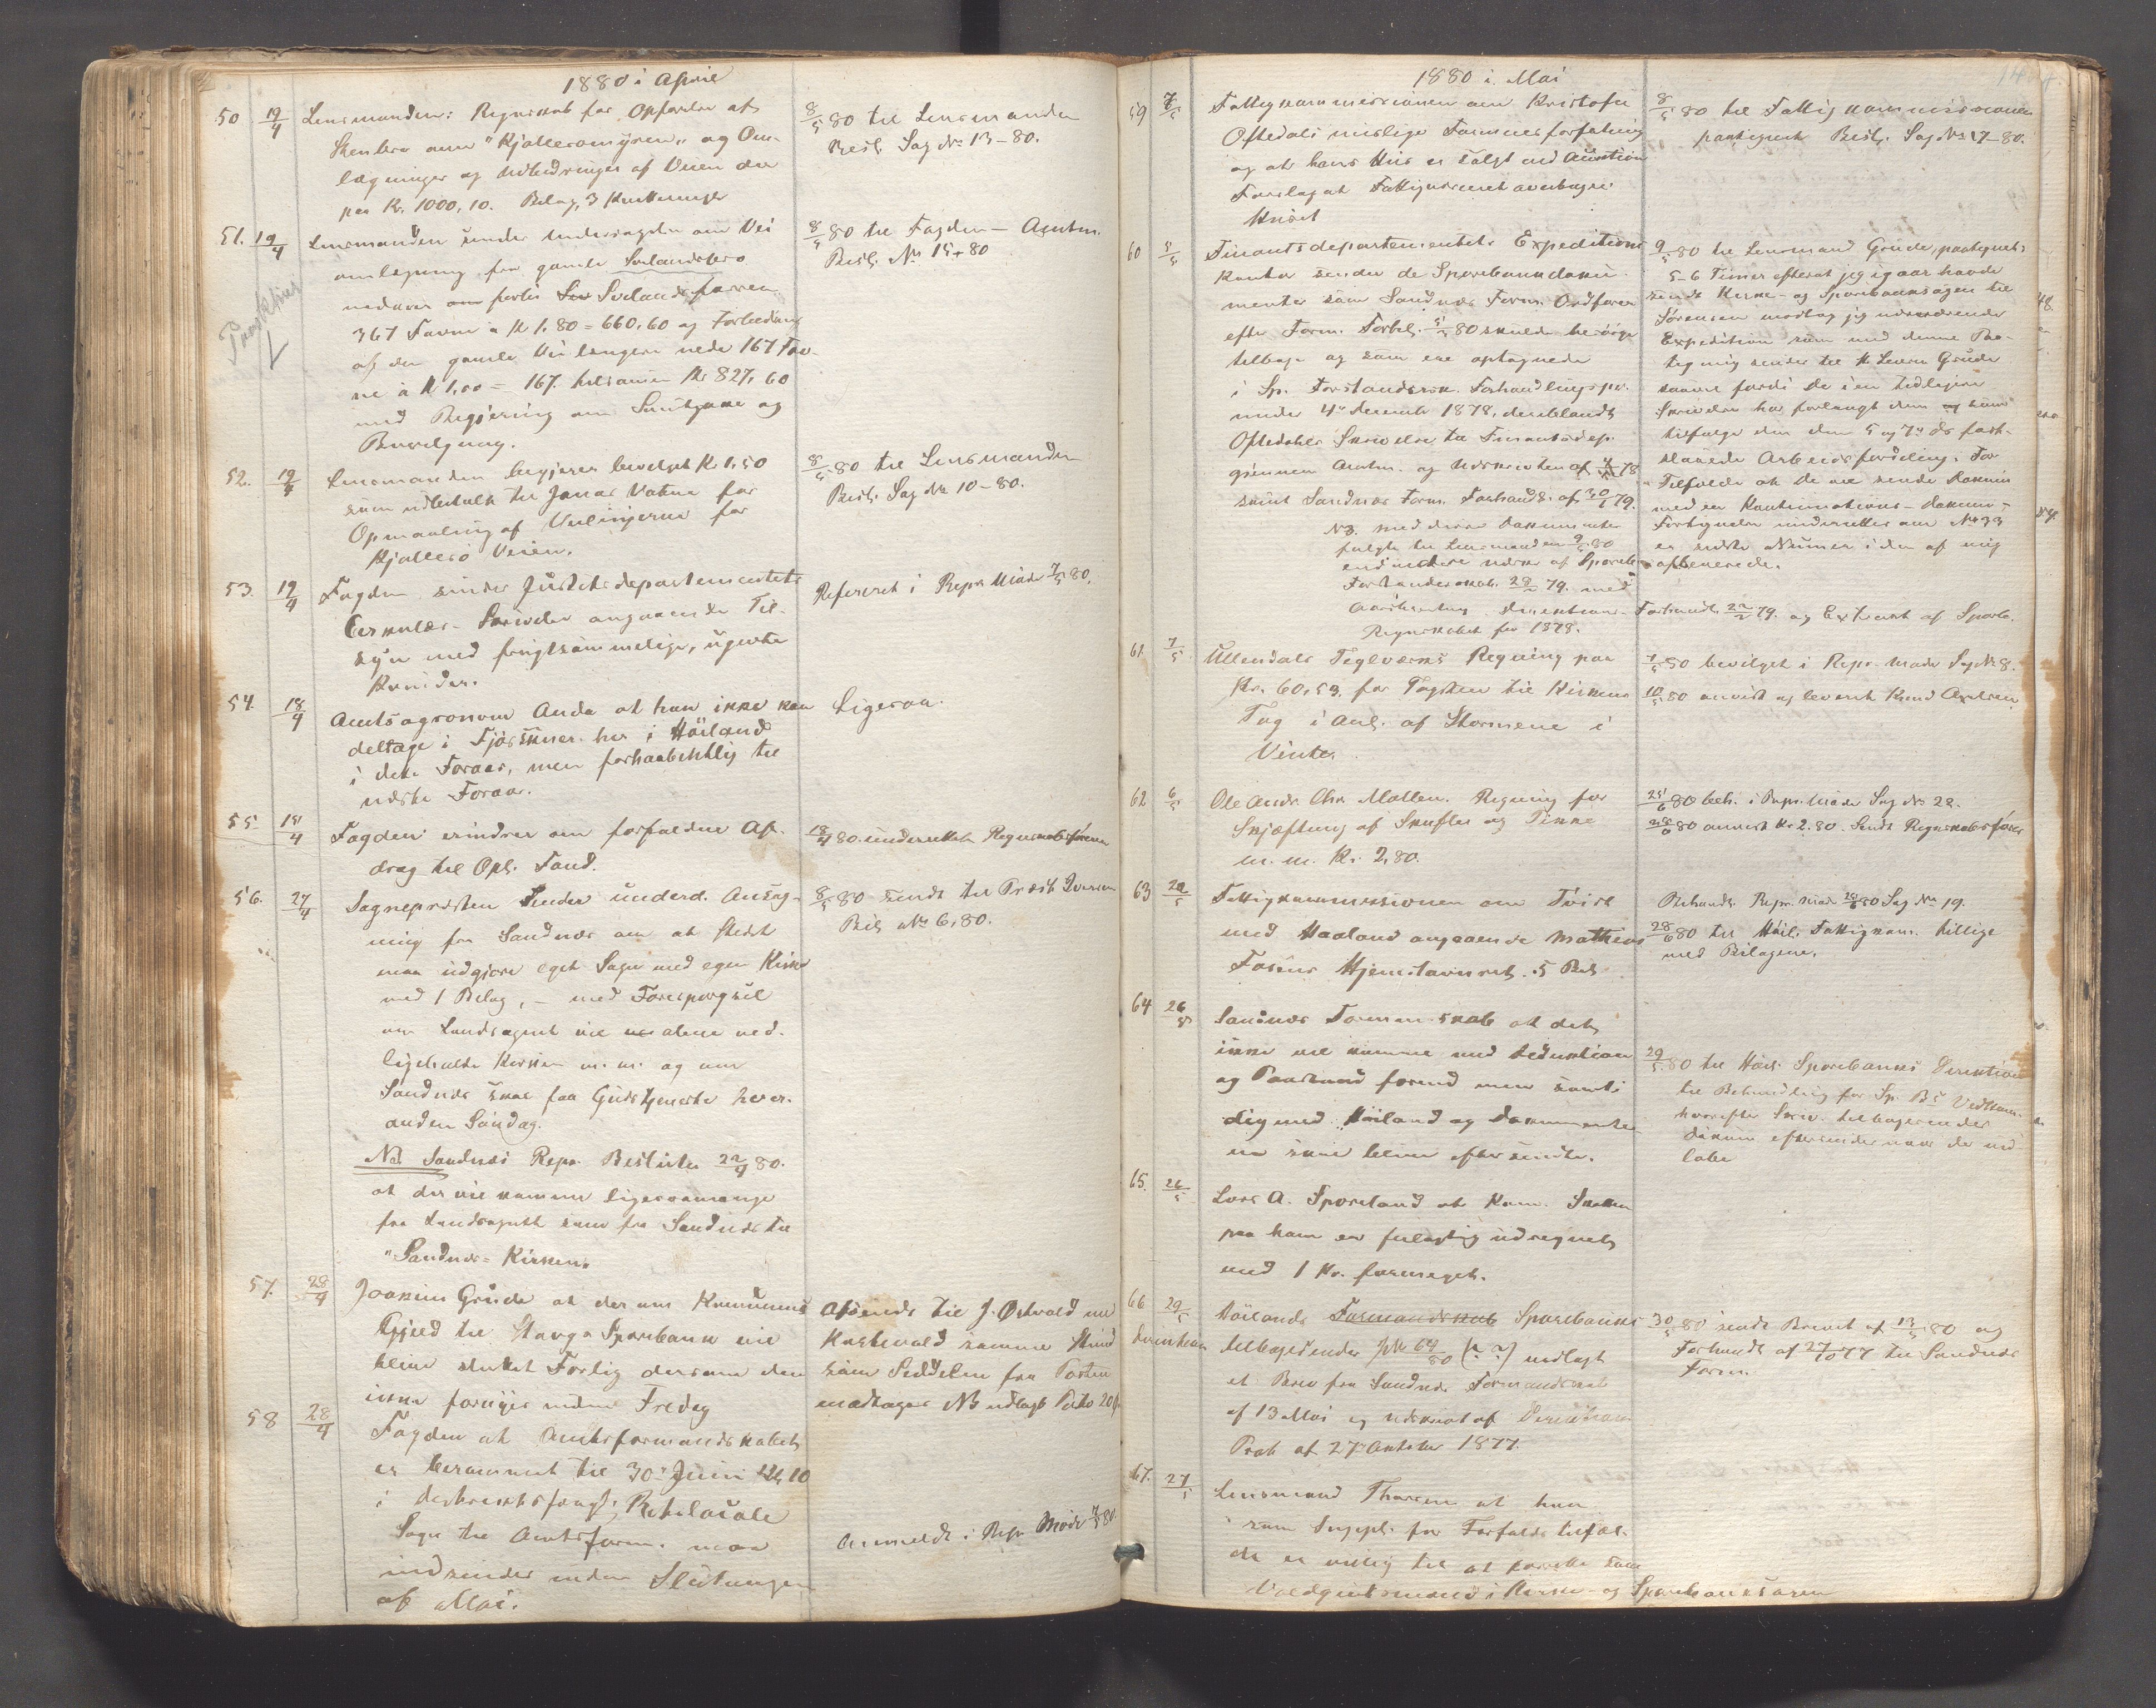 1880 i April
50 19/4 Lensmanden: Regnskab for Opførelse af
Stenbro over "Kjølleromyren" og Om-
lægninger og Udbedringer af Veien der
paa Kr. 1000,10. Bilag, 3 Kvitteringer
8/5 80 til Lensmanden
Besl. Sag No 13-80.
51. 19/4 Lensmanden sender Undersøgelse om Vei
omlægning fra gamle Svilandsbro
nedover forbi Svilands
367 Favne à Kr 1.80 = 660,60 og Forbedring
af den gamle Vei længere nede 167 Fav-
ne à Kr 1,00 = 167. tilsammen Kr 827,60
med Begjæring om Samtykke og
Bevilgning.
8/5 80 til Fogden - Amtm.
Besl. No 15-80
52. 19/4 Lensmanden begjærer bevilget Kr 1,50
som udbetalt til Jonas Vatne for
Opmaaling af Veilinjerne for
Kjøllerø Veien.
8/5 80 til Lensmanden
Besl. Sag No 10-80.
53. 19/4 Fogden sender Justitsdepartementets
Cirkulær-Skrivelse angaaende Til-
syn med frugtsommelige, ugivte
Kvinder.
Refereret i Repr. Møde 7/5 80.
54 18/4 Amtsagronom Anda at han ikke kan
deltage i Fjøsskuer her i Høiland
i dette Foraar, men forhaabentlig til
næste Foraar.
Ligesaa.
55 18/4 Fogden erindrer om forfaldne Af-
drag til Opl. Fond.
18/4 80. underrettet Regnskabsføreren
56. 27/4 Sognepresten sender underd. Ansøg-
ning fra Sandnæs om at Stedet
maa udgjøre eget Sogn med egen Kirke
med 1 Bilag, - med Forespørgsel
om Landsognet vil alene ved-
ligeholde Kirken m. m. og om
Sandnæs skal faa Gudstjeneste hver-
anden Søndag.
8/5 80 sendt til Præst Iversen
Besl. No 6,80.
NB. Sandnæs Repr. Beslutter 22/4 80.
at der vil komme ligesaamange
fra Landsognet som fra Sandnæs til
"Sandnæs-Kirken"
57. 28/4 Joakim Grude at der om Kommunens
Gjæld til Stavgr Sparebank vil
blive sluttet Forlig dersom den
ikke fornyes inden Fredag
Afsendt til J. Østvold med
samme Skind
som Seddelen fra Posten
modtages NB udlagt Porto 20
58 28/4 Fogden at Amtsformandskabet
er berammet til 30te Juni Kl 10
i
Sager til Amtsform. maa
indsendes inden Slutningen
af Mai.
Anmeldt i Repr. Møde 7/5 80.
1880 i Mai
59 7/5 Fattigkommissionen om Kristofer
Oftedals mislige Formuesforfatning
og at hans Hus er solgt ved Auktion
Forslag at Fattigvæsenet overtager
Huset
8/5 80 til Fattigkommissionen
paategnet Besl. Sag No 17-80.
60 5/5 Finantsdepartementets Expeditions
Kontor sender de Sparebankdoku-
menter som Sandnæs Form. Ordfører
efter Form. Forhl. 80 skulde besørge
tilbage og som ere optagnede
i Sp. Forstandersk. Forhandlingspr.
under 4de December 1878, deriblandt
Oftedahls Skrivelse til Finantsdep.
gjennem Amtm. og Udskriften af 78
samt Sandnæs Form. Forhandl. af 30/1 79.
NB. med disse Dokumenter
fulgte til Lensmanden 9/5 80
endvidere Udskr. af Spareb.
Forstandersk. 79. med
Regnskabet for 1878.
9/5 80 til Lensmand Grude, paategnet:
5-6 Timer efterat jeg igaar havde
sendt Kirke- og Sparebanksagen til
Sørensen modtog jeg nærværende
Expedition som med denne Paa-
tegning sendes til Hr Lensm Grude
samme fordi De i en tidligere
Skrivelse har forlangt dem og som
tilfølge den den 5 og 7de ds fast-
slaaede Arbeidsfordeling. For
Tilfælde at De vil sende Dokum
med en Kontinuations-Dokum-
Fortegnelse underrettes om No 33
er sidste Nummer i den af mig
Forhandl. 79. og Extrakt af Spareb.
61. 7/5 Ullendals Teglværks Regning paa
Kr. 60,53 for Tagsten til Kirkens
Tag i Anl. af Stormene i
Vinter.
7/5 80 bevilget i Repr. Møde Sag No 8.
10/5 80 anvist og leveret Knud Axelsen
62 6/5 Ole Andr. Chr. Mollen. Regning for
Skjæftning af Skufler og Tinke
m. m. Kr. 2,80.
25/6 80 beh. i Repr. Møde Sag No 22.
28/6 80 anvist Kr 2.80. Sendt Regnskabsfører
63 22/5 Fattigkommissionen om Tvist
med Haaland angaaende Mathias
Hjemstavnsret. 5 Bil.
Behandl. Repr. Møde 25/6 80 Sag No 19.
28/6 80 til Høil. Fattigkom. tillige
med Bilagene.
64 26/5 Sandnæs Formandskab at det
ikke vil komme med Deduktion
og Paastand førend men samti-
dig med Høiland og Dokumenter-
ne skal blive eftersendte.
29/5 80 til Høil. Sparebanks Direktion
til Behandling for Sp. Bs Vedkom.
hvorefter Skriv. tilbagesendes
Dokum eftersendes naar de ind-
løbe
65. 26/5 Lars A. Sporeland at Kom. Skatten
paa ham er feilagtig udregnet
med 1 Kr. formeget.
66 29/5 Høilands Formandskab Sparebanks
Direktion tilbagesender No 64/80 (? ?) vedlagt
et Brev fra Sandnæs Formandskab
af 13 Mai og Udskrivt af Direktions
Prot. af 27de Oktober 1877.
30/5 80 sendt Brevet af 13/5 80 og
Forhandl. af 27/10 77 til Sandnæs
Form.
67. 27/5 Lensmand Thorsen at han
som Suppl. for Forfalds tilfæl-
de er villig til at
Voldgiftsmand i Kirke- og Sparebanksagen